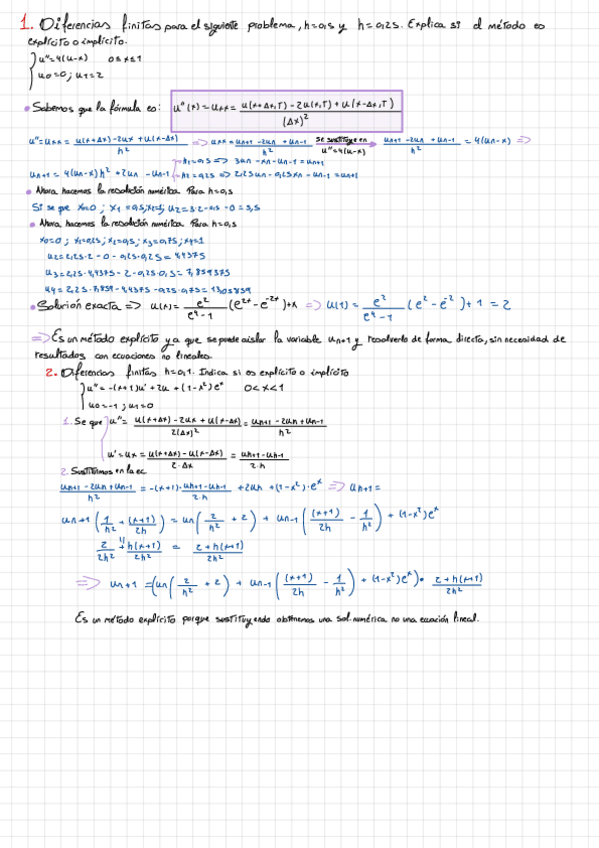 1. Diferencias finitas para el siguiente problema, h=0,5 y h=0,25. Explica si el método es
explícito o implícito.
u''=4(u-x) 0≤x≤1
u0=0; u1=2
• Sabemos que la fórmula es: u''(x)=uxx= u(x+Δx,T)-2u(x,T)+u(x-Δx,T) / (Δx)²
u''=uxx= u(x+Δx)-2ux+u(x-Δx) / h² => uxx= un+1-2un+un-1 / h² se sustituye en u''=4(u-x) un+1-2un+un-1 / h² = 4(un-x) =>
un+1=4(un-x)h²+2un-un-1 h1=0,5 => 3un-xn-un-1=un+1
h2=0,25 => 2,25un-0,25xn-un-1=un+1
• Ahora hacemos la resolución numérica. Para h=0,5
Si se que x0=0; x1=0,5; x2=1; u2=3·2-0,5-0=5,5
• Ahora hacemos la resolución numérica. Para h=0,5
x0=0; x1=0,25; x2=0,5; x3=0,75; x4=1
u2=2,25·2-0-0,25·0,25=4,4375
u3=2,25·4,4375-2-0,25·0,5=7,859375
u4=2,25·7,859-4,4375-0,25·0,75=13,05859
• Solución exacta => u(x)= e² / e⁴-1 (e²ˣ-e⁻²ˣ)+x => u(1)= e² / e⁴-1 (e²-e⁻²)+1=2
=> Es un método explícito ya que se puede aislar la variable un+1 y resolverlo de forma directa, sin necesidad de
resultados con ecuaciones no lineales.
2. Diferencias finitas h=0,1. Indica si es explícito o implícito
u''=-(x+1)u'+2u+(1-x²)eˣ 0<x<1
u0=-1; u1=0
1. Se que u''= u(x+Δx)-2ux+u(x-Δx) / 2(Δx)² = un+1-2un+un-1 / h²
u'=ux= u(x+Δx)-u(x-Δx) / 2·Δx = un+1-un-1 / 2·h
2. Sustituimos en la ec
un+1-2un+un-1 / h² = -(x+1)· un+1-un-1 / 2·h +2un+(1-x²)·eˣ => un+1=
un+1(1/h² + (x+1)/2h) = un(2/h² + 2) + un-1((x+1)/2h - 1/h²) + (1-x²)eˣ
2/2h² + h(x+1)/2h² = 2+h(x+1)/2h²
=> un+1=(un(2/h² + 2) + un-1((x+1)/2h - 1/h²) + (1-x²)eˣ)· 2+h(x+1)/2h²
Es un método explícito porque sustituyendo obtenemos una sol. numérica no una ecuación lineal.